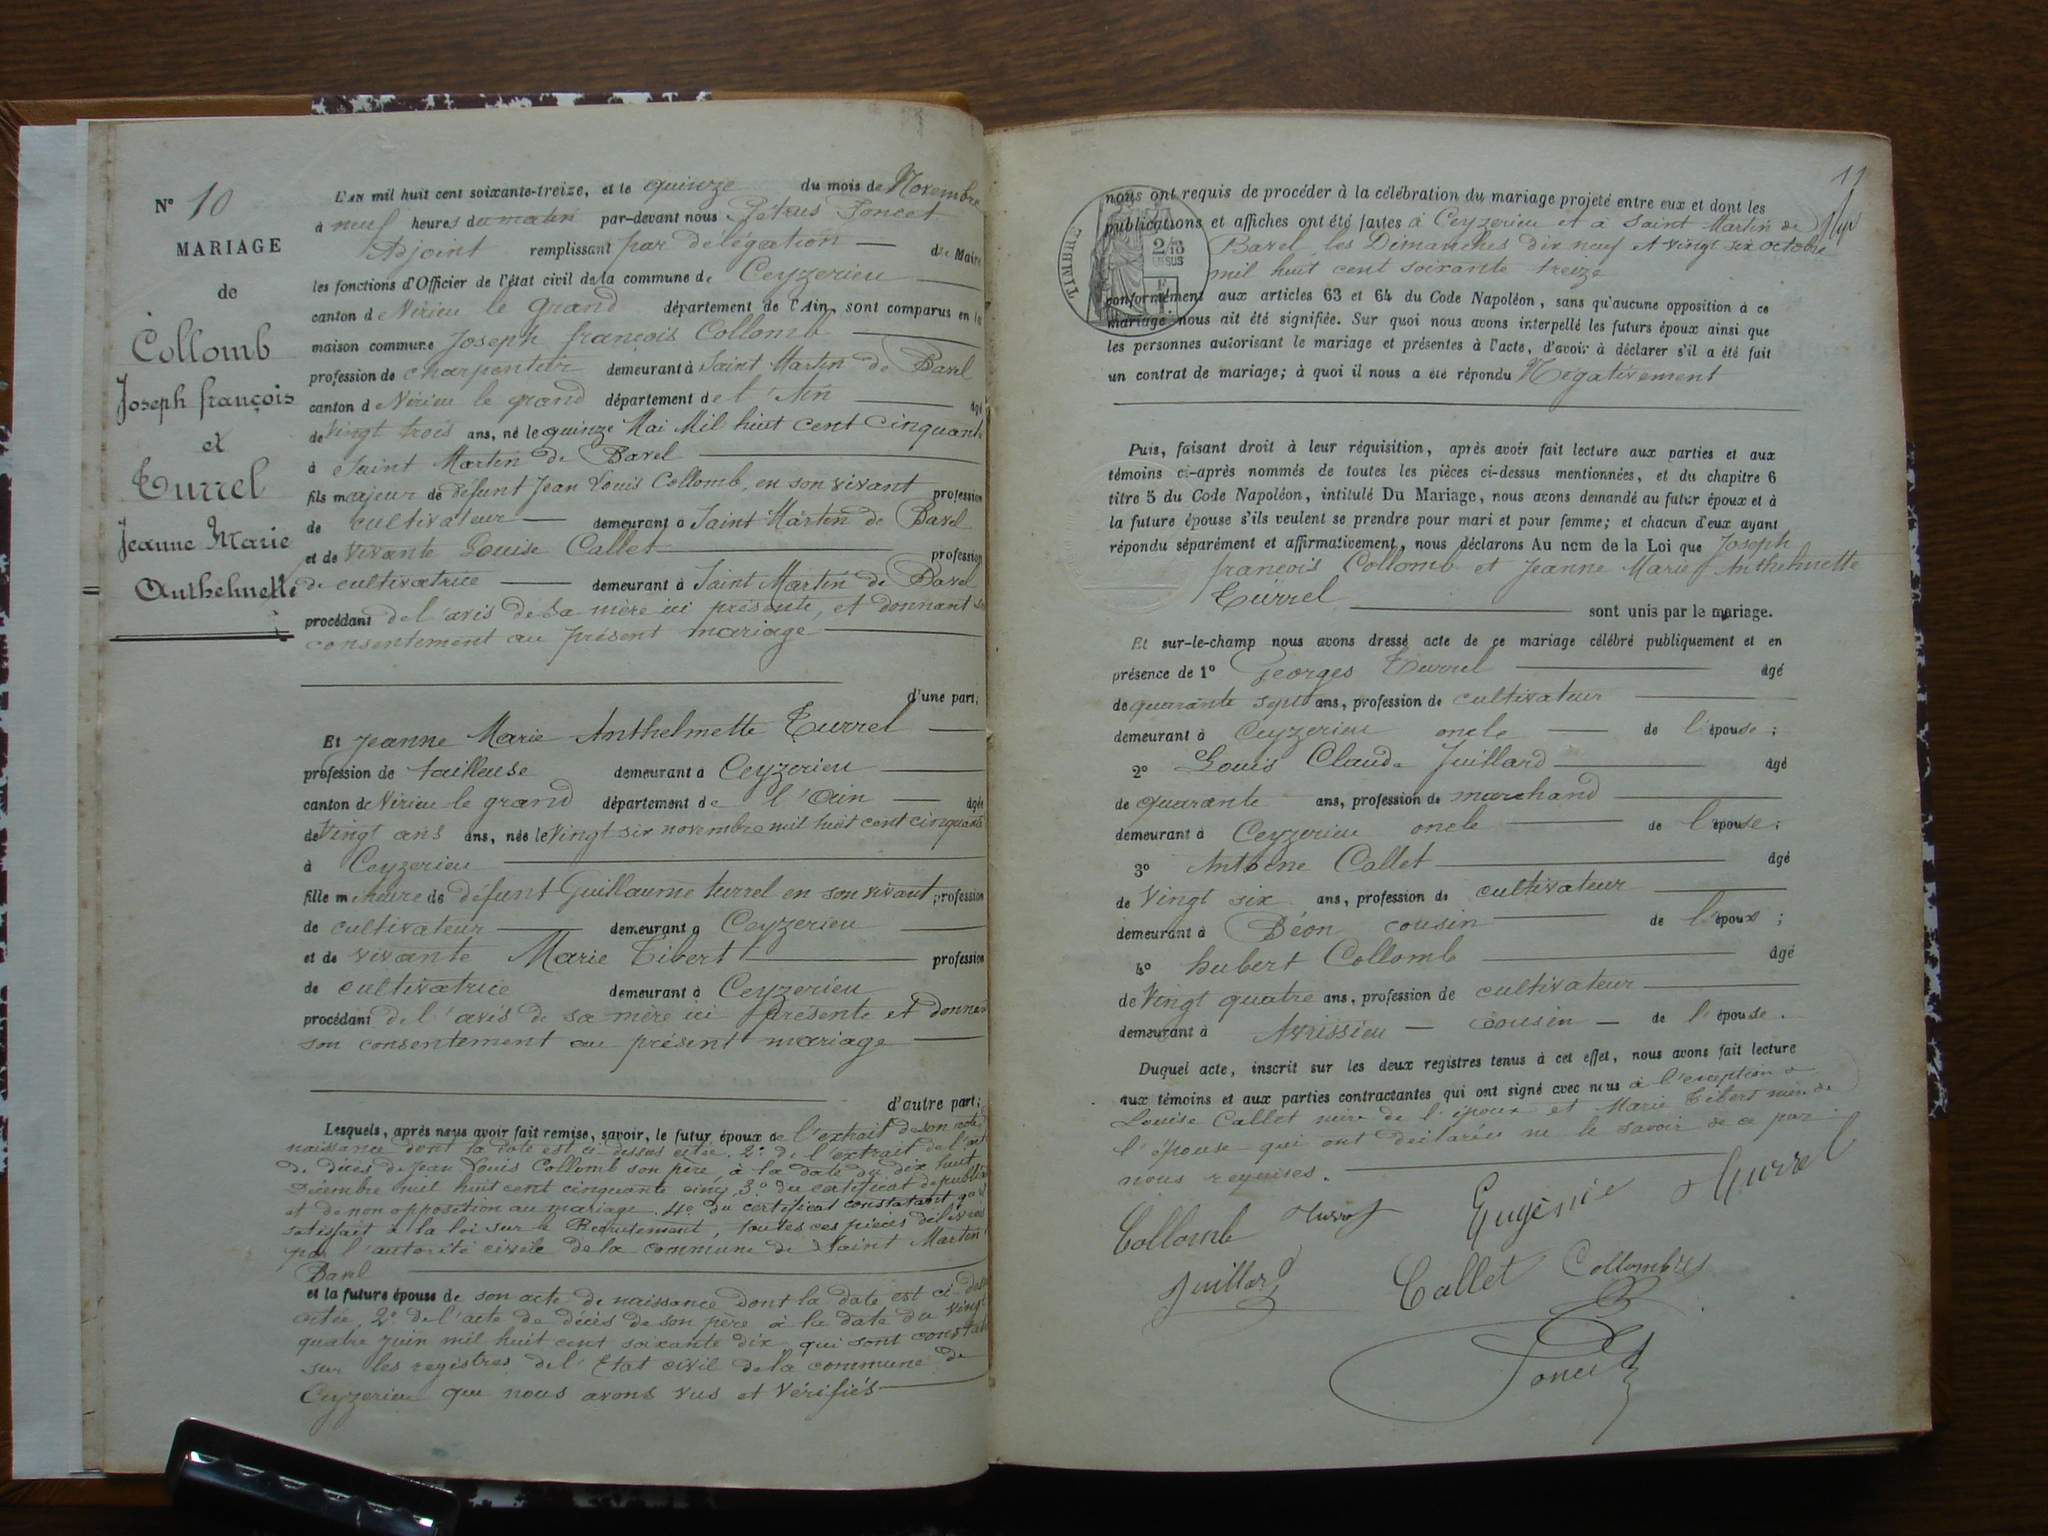 N° 10
MARIAGE
de
Collomb
Joseph françois
et
Turrel
Jeanne Marie
Anthelmette
L'AN mil huit cent soixante-treize, et le quinze du mois de Novembre
à neuf heures du matin par-devant nous Pétrus Poncet
Adjoint remplissant par délégation du Maire
les fonctions d'Officier de l'état civil de la commune de Ceyzerieu
canton de Virieu le grand département de l'Ain, sont comparus en la
maison commune Joseph françois Collomb
profession de charpentier demeurant à Saint Martin de Bavel
canton de Virieu le grand département de l'Ain âgé
de vingt trois ans, né le quinze Mai Mil huit cent cinquante
à Saint Martin de Bavel
fils majeur de défunt Jean Louis Collomb, en son vivant profession
de cultivateur demeurant à Saint Martin de Bavel
et de vivante Louise Callet profession
de cultivatrice demeurant à Saint Martin de Bavel
procédant de l'avis de sa mère ici présente, et donnant son
consentement au présent mariage
d'une part;
Et Jeanne Marie Anthelmette Turrel
profession de tailleuse demeurant à Ceyzerieu
canton de Virieu le grand département de l'Ain âgée
de vingt ans ans, née le vingt six novembre mil huit cent cinquante
à Ceyzerieu
fille mineure de défunt Guillaume turrel en son vivant profession
de cultivateur demeurant à Ceyzerieu
et de vivante Marie Tibert profession
de cultivatrice demeurant à Ceyzerieu
procédant de l'avis de sa mère ici présente et donnant
son consentement au présent mariage
d'autre part;
Lesquels, après nous avoir fait remise, savoir, le futur époux de l'extrait de son acte de
naissance dont la date est ci dessus citée. 2° de l'extrait de l'acte
de décès de Jean Louis Collomb son père, à la date du dix huit
Décembre mil huit cent cinquante cinq 3° du certificat de publication
et de non opposition au mariage. 4° du certificat constatant qu'il
satisfait à la loi sur le Recrutement, toutes ces pièces délivrées
par l'autorité civile de la commune de Saint Martin
Bavel
et la future épouse de son acte de naissance dont la date est ci-dessus
citée, 2° de l'acte de décès de son père à la date du vingt
quatre juin mil huit cent soixante dix qui sont constatés
sur les registres de l'Etat civil de la commune de
Ceyzerieu que nous avons vus et vérifiés
11
nous ont requis de procéder à la célébration du mariage projeté entre eux et dont les
publications et affiches ont été faites à Ceyzerieu et à Saint Martin de
Bavel, les Dimanches dix neuf et vingt six octobre
mil huit cent soixante treize
TIMBRE
conformément aux articles 63 et 64 du Code Napoléon, sans qu'aucune opposition à ce
mariage nous ait été signifiée. Sur quoi nous avons interpellé les futurs époux ainsi que
les personnes autorisant le mariage et présentes à l'acte, d'avoir à déclarer s'il a été fait
un contrat de mariage; à quoi il nous a été répondu Négativement
Puis, faisant droit à leur réquisition, après avoir fait lecture aux parties et aux
témoins ci-après nommés de toutes les pièces ci-dessus mentionnées, et du chapitre 6
titre 5 du Code Napoléon, intitulé Du Mariage, nous avons demandé au futur époux et à
la future épouse s'ils veulent se prendre pour mari et pour femme; et chacun d'eux ayant
répondu séparément et affirmativement, nous déclarons Au nom de la Loi que Joseph
françois Collomb et Jeanne Marie Anthelmette
Turrel sont unis par le mariage.
Et sur-le-champ nous avons dressé acte de ce mariage célébré publiquement et en
présence de 1° Georges Turrel âgé
de quarante sept ans, profession de cultivateur
demeurant à Ceyzerieu oncle de l'épouse;
2° Louis Claude Juillard âgé
de quarante ans, profession de marchand
demeurant à Ceyzerieu oncle de l'épouse;
3° Antoine Callet âgé
de vingt six ans, profession de cultivateur
demeurant à Béon cousin de l'époux;
4° hubert Collomb âgé
de vingt quatre ans, profession de cultivateur
demeurant à Avrissieu cousin de l'épouse.
Duquel acte, inscrit sur les deux registres tenus à cet effet, nous avons fait lecture
aux témoins et aux parties contractantes qui ont signé avec nous à l'exception de
Louise Callet mère de l'époux et Marie Tibert mère de
l'épouse qui ont déclarées ne le savoir de ce par
nous requises.
Collomb Turrel Eugénie Turrel
Juillard Callet Collomb
Poncet